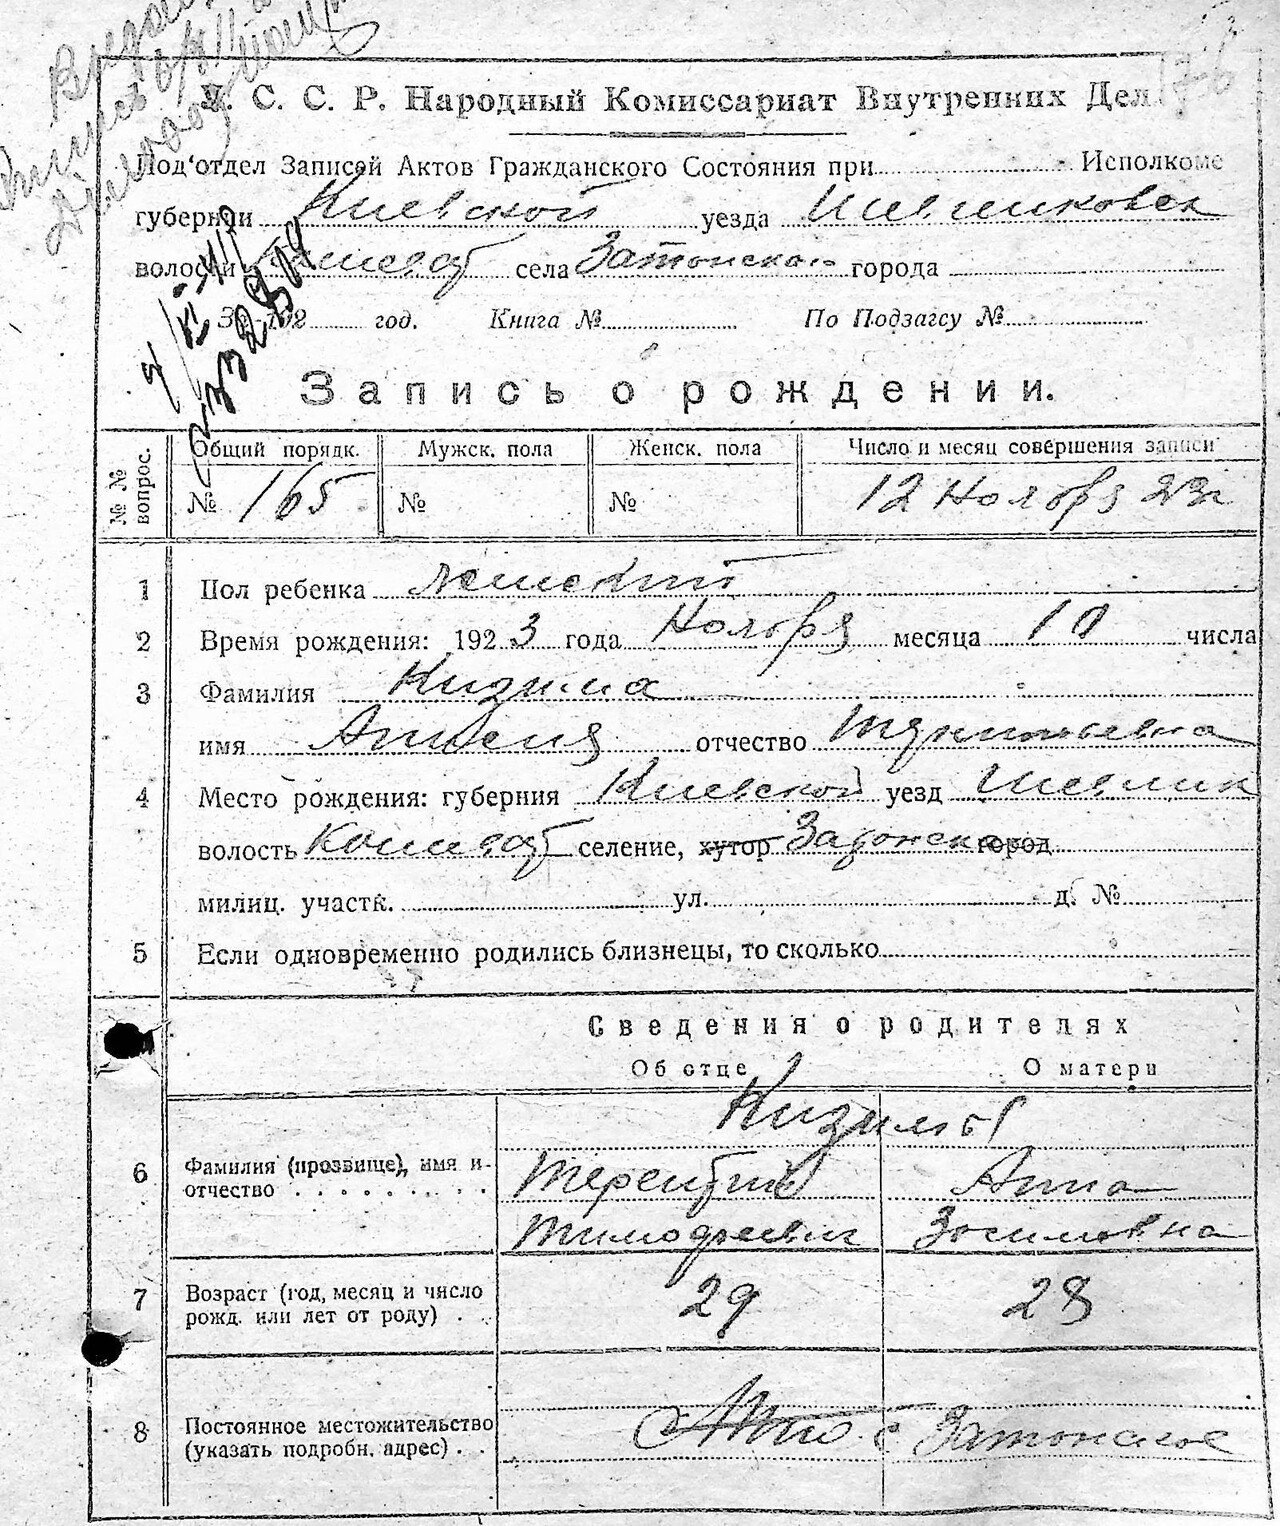 176
У. С. С. Р. Народный Комиссариат Внутренних Дел.
Под'отдел Записей Актов Гражданского Состояния при Исполкоме
губернии Киевской уезда
волости села Затонское города
За 192 год. Книга № По Подзагсу №
Запись о рождении.
№ № вопрос. Общий порядк. Мужск. пола Женск. пола Число и месяц совершения записи
№ 165 № № 12 Ноября 23г
1 Пол ребенка женский
2 Время рождения: 1923 года Ноября месяца 10 числа
3 Фамилия Кизима
имя отчество Терентьевна
4 Место рождения: губерния Киевской уезд
волость селение, хутор Затонское город
милиц. участк. ул. д. №
5 Если одновременно родились близнецы, то сколько
Сведения о родителях
Об отце О матери
Кизимы
6 Фамилия (прозвище), имя и Терентий Анна
отчество Тимофеевич Зосимовна
7 Возраст (год, месяц и число 29 28
рожд. или лет от роду)
8 Постоянное местожительство с Затонское
(указать подробн. адрес)